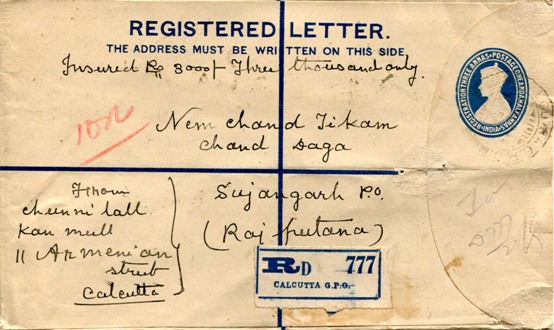 REGISTERED LETTER.
THE ADDRESS MUST BE WRITTEN ON THIS SIDE.
Insured Rs 3000/- Three thousand only.
Nem Chand Tikam
Chand Daga
Sujangarh P.O.
(Rajputana)
From
Chunni lall
Kan mull
11 Armenian
street
Calcutta
RD 777
CALCUTTA G.P.O.
REGISTRATION THREE ANNAS · POSTAGE ONE AND A HALF ANNAS · INDIA